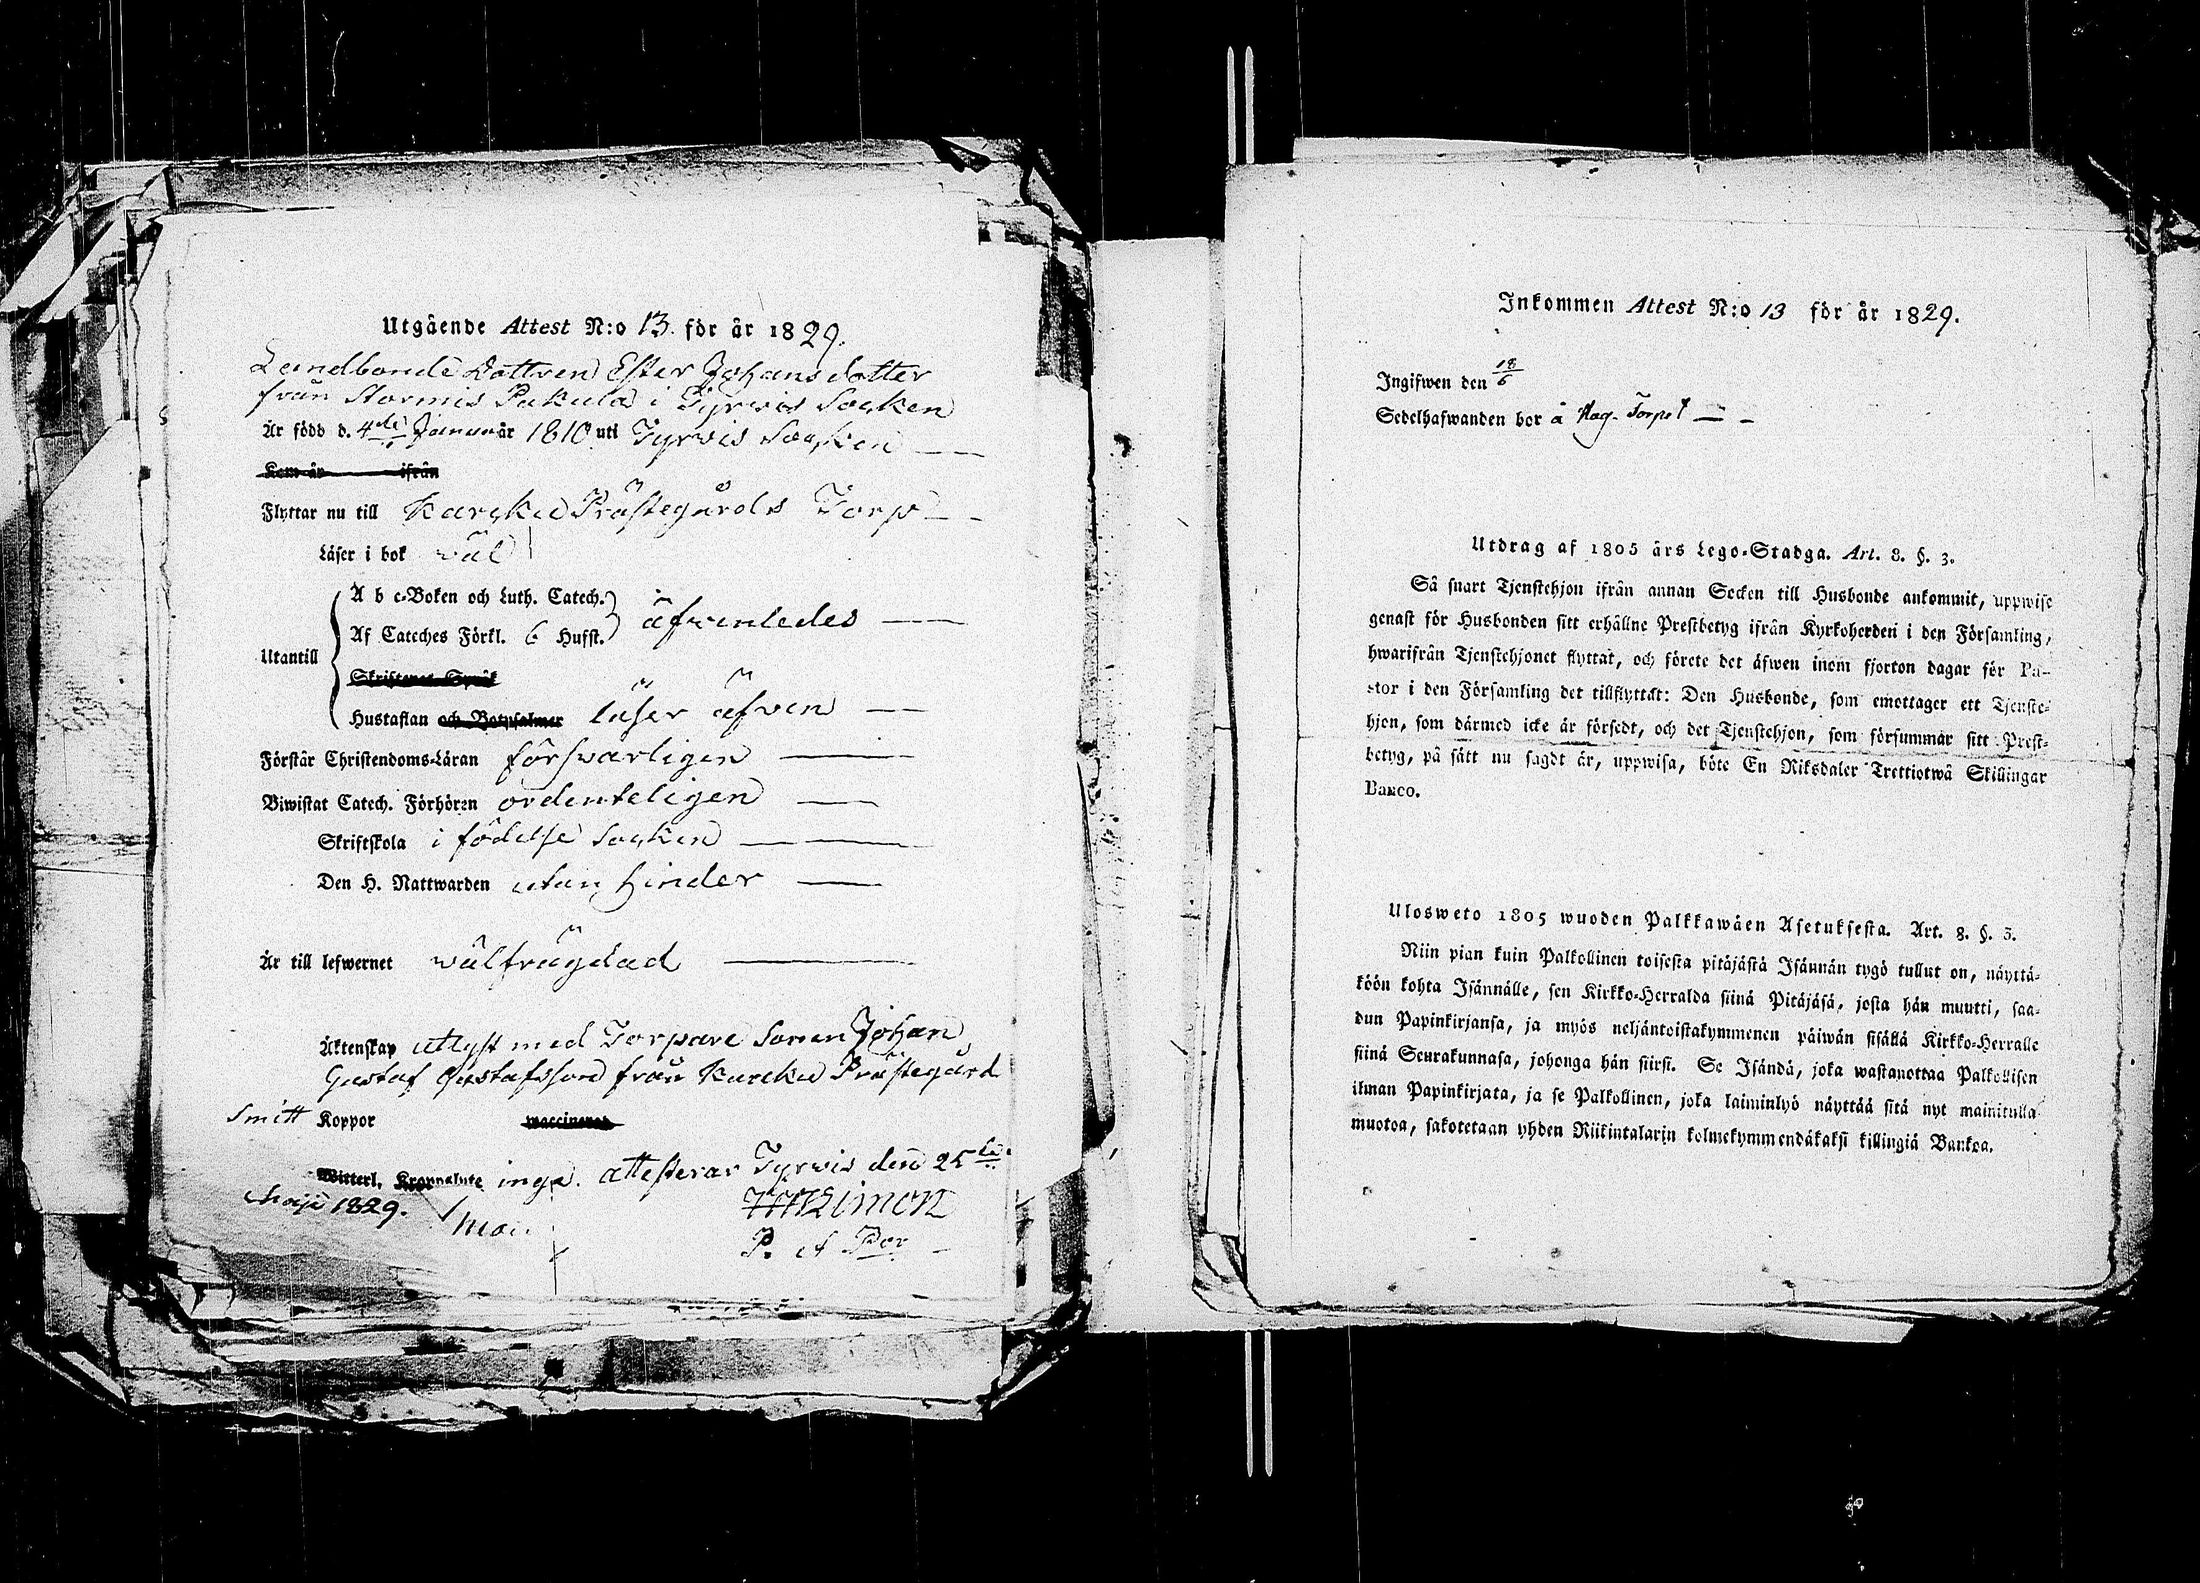 Utgående Attest N:o 13. för år 1829.
Landbonde Dottren Ester Johans dotter
från Stormis Pakula i Tyrvis Socken
Är född d. 4de Januar 1810 uti Tyrvis Socken
Kom år ifrån
Flyttar nu till Karcku Prästegårds Torp
Läser i bok wäl
A b c-Boken och Luth. Catech.
Af Cateches Förkl. 6 Hufst. äfvenledes
Utantill
Skriftenes Språk
Hustaflan och Botpsalmer läser äfven
Förstår Christendoms-Läran försvarligen
Biwistat Catech. Förhören ordenteligen
Skriftskola i födelse Socken
Den H. Nattwarden utan hinder
Är till lefwernet wälfrägdad
Äktenskap utlyst med Torpare Sonen Johan
Gustaf Gustafsson från Karcku Prästegård
Smitt Koppor vaccinerad
Witterl. Kroppslyte inga. attesterar Tyrvis den 25te
Maji 1829.
P. A Por
Inkommen Attest N:o 13 för år 1829.
Ingifwen den 18/6
Sedelhafwanden bor å Hag-Torpet
Utdrag af 1805 års Lego-Stadga. Art. 8. §. 3.
Så snart Tjenstehjon ifrån annan Socken till Husbonde ankommit, uppwise
genast för Husbonden sitt erhållne Prestbetyg ifrån Kyrkoherden i den Församling,
hwarifrån Tjenstehjonet flyttat, och förete det äfwen inom fjorton dagar för Pa-
stor i den Församling det tillflyttat: Den Husbonde, som emottager ett Tjenste-
hjon, som därmed icke är försedt, och det Tjenstehjon, som försummar sitt Prest-
betyg, på sätt nu sagdt är, uppwisa, böte En Riksdaler Trettiotwå Skillingar
Banco.
Ulosweto 1805 wuoden Palkkawäen Asetuksesta. Art. 8. §. 3.
Niin pian kuin Palkollinen toisesta pitäjästä Isännän tygö tullut on, näyttä-
köön kohta Isännälle, sen Kirkko-Herralda siinä Pitäjäsä, josta hän muutti, saa-
dun Papinkirjansa, ja myös neljäntoistakymmenen päiwän sisällä Kirkko-Herralle
siinä Seurakunnasa, johonga hän siirsi. Se Isändä, joka wastanottaa Palkollisen
ilman Papinkirjata, ja se Palkollinen, joka laiminlyö näyttää sitä nyt mainitulla
muotoa, sakotetaan yhden Riikintalarin kolmekymmendäkaksi killingiä Bankoa.